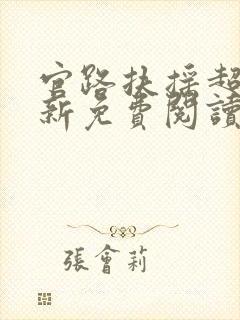 官路扶搖超
新免費閱讀
張會莉